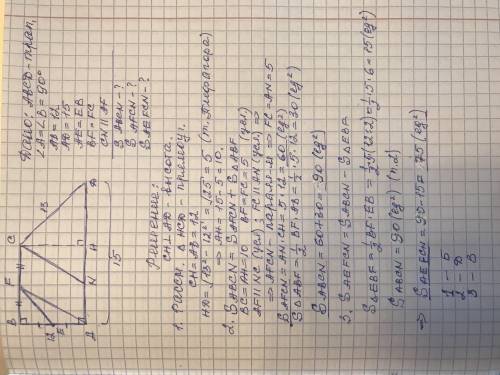 Дано: ABCD-трап,
∠A=∠B=90°
AB=12
AD=15
AE=EB
BF=FC
CN || AF
S ABCN-?
S AFCN-?
S AEFCN-?
B F C
13
12
E
A N H D
15
Решение:
CH⊥AD-высота.
1. Рассм. Δ HCD-прямоуг.
CH=AB=12
HD=√13²-12²=√25=5 (т. Пифагора)
⇒ AH=15-5=10.
2. SABCN=SAFCN+SΔABF
BC=AH=10 BF=FC=5 (усл)
AF || NC (усл); FC || AN (усл) ⇒
⇒ AFCN-паралл-м ⇒ FC=AN=5
SAFCN=AN·CH=5·12=60 (ед²)
SΔABF=½·BF·AB=½·5·12=30 (ед²)
SABCN=60+30=90 (ед²)
3. SAEFCN=SABCN-SΔEBF
SΔEBF=½BF·EB=½·5(12:2)=½·5·6=15 (ед²)
SABCN=90(ед²) (п.2)
⇒ SAEFCN=90-15=75 (ед²)
1-5
2-
3-